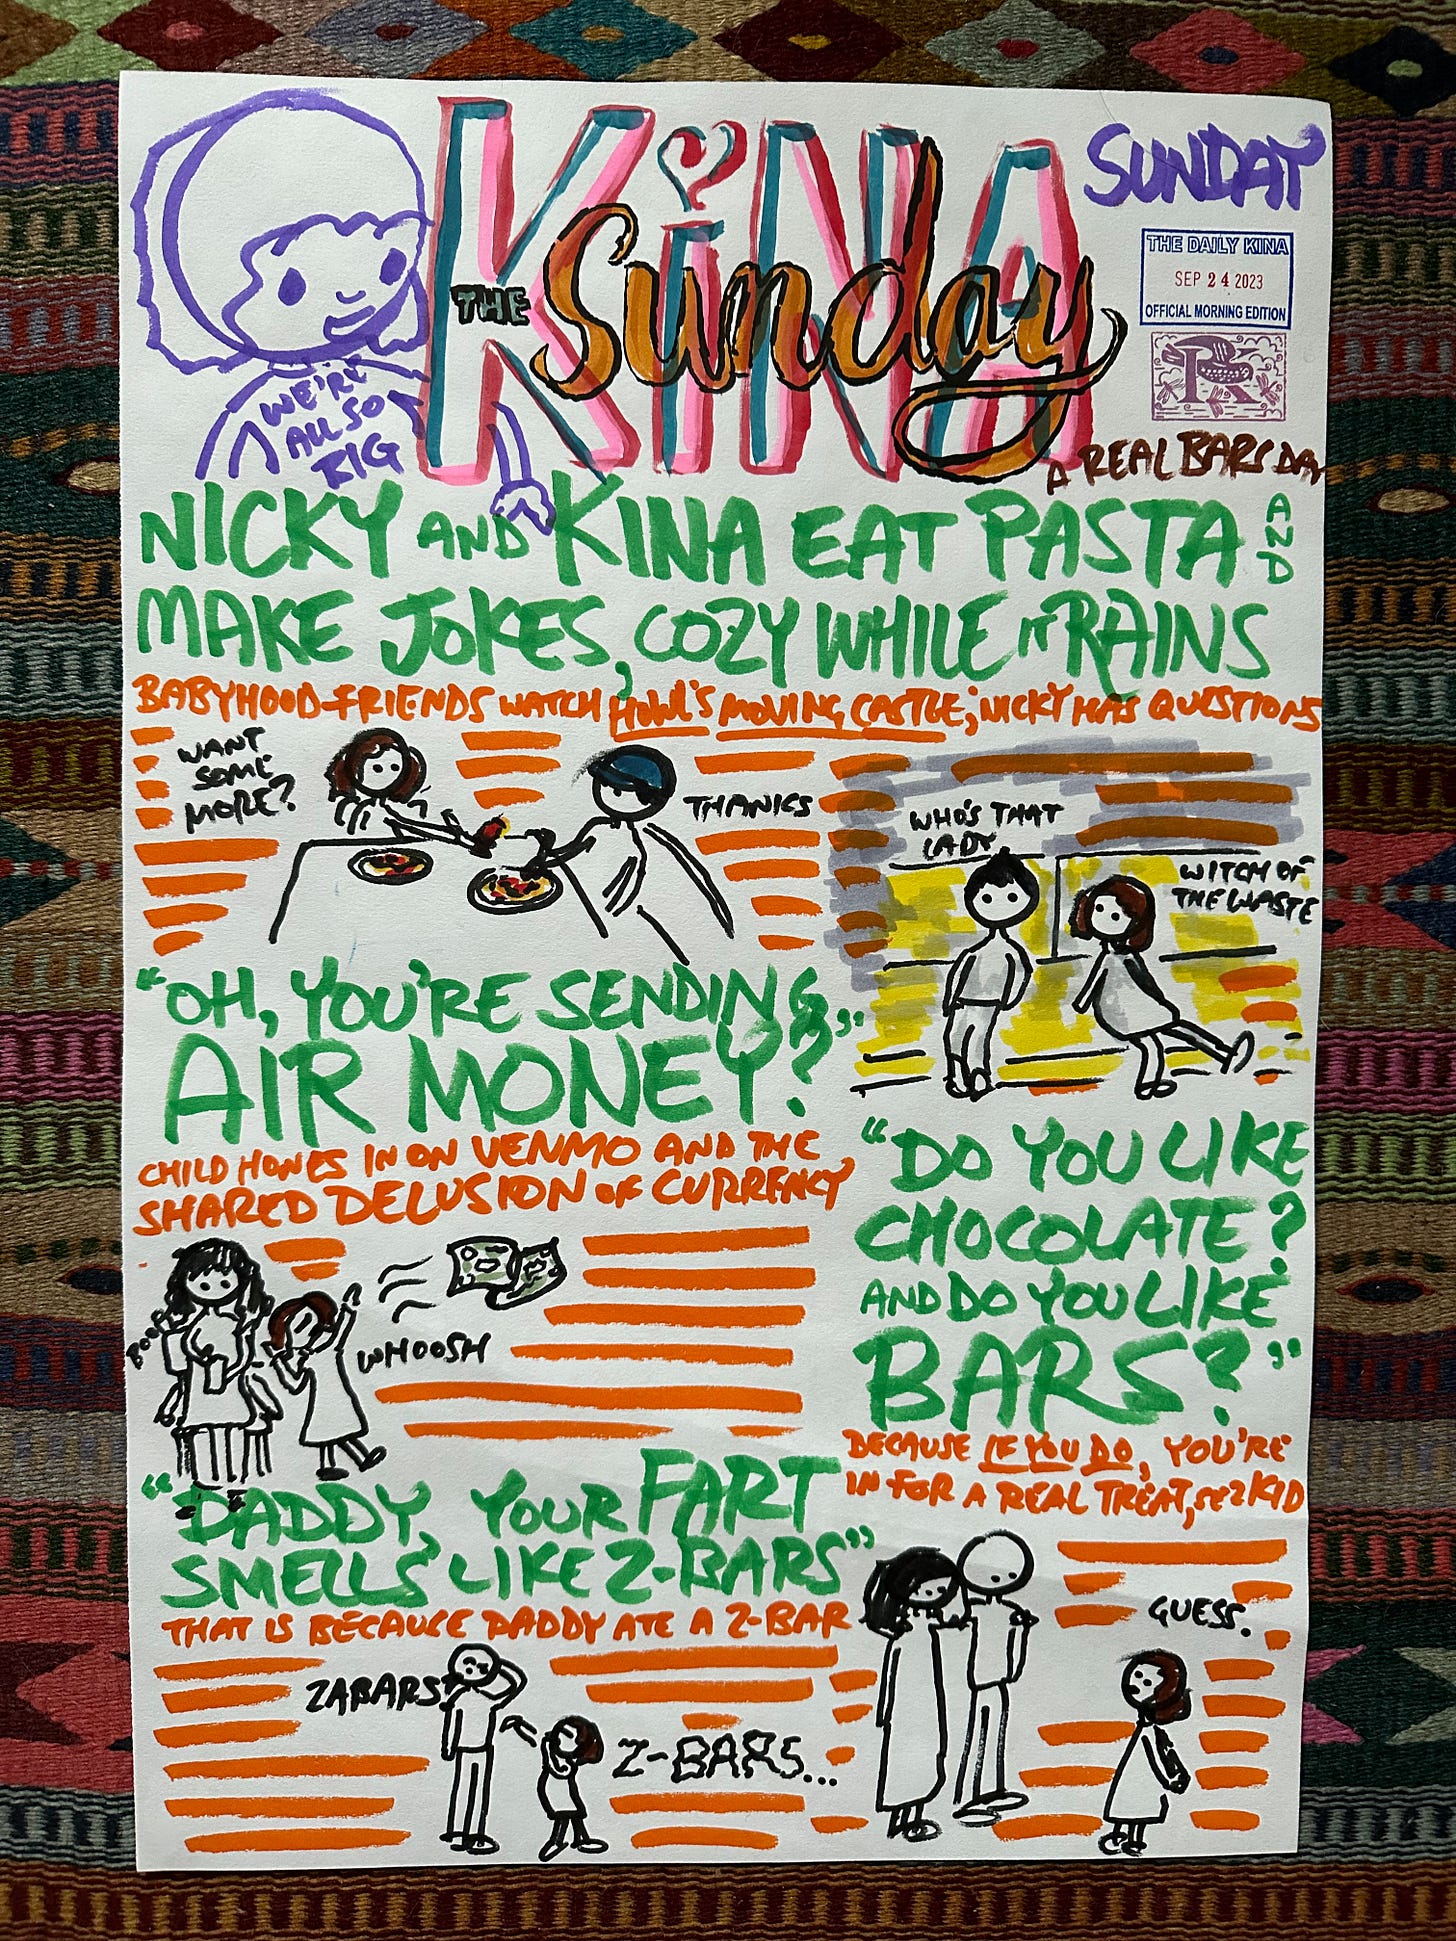 KiNA
THE Sunday
SUNDAY
THE DAILY KINA
SEP 24 2023
OFFICIAL MORNING EDITION
K
A REAL BARS DA
WE'RE
ALL SO
BIG
NICKY AND KINA EAT PASTA AND
MAKE JOKES, COZY WHILE IT RAINS
BABYHOOD FRIENDS WATCH HOWL'S MOVING CASTLE; NICKY HAS QUESTIONS
WANT
SOME
MORE?
THANKS
WHO'S THAT
LADY
WITCH OF
THE WASTE
"OH, YOU'RE SENDING
AIR MONEY?"
CHILD HONES IN ON VENMO AND THE
SHARED DELUSION OF CURRENCY
BOOP
WHOOSH
"DO YOU LIKE
CHOCOLATE?
AND DO YOU LIKE
BARS?"
BECAUSE IF YOU DO, YOU'RE
IN FOR A REAL TREAT, SEZ KID
GUESS.
"DADDY, YOUR FART
SMELLS LIKE Z-BARS"
THAT IS BECAUSE DADDY ATE A Z-BAR
ZABARS?
Z-BARS...